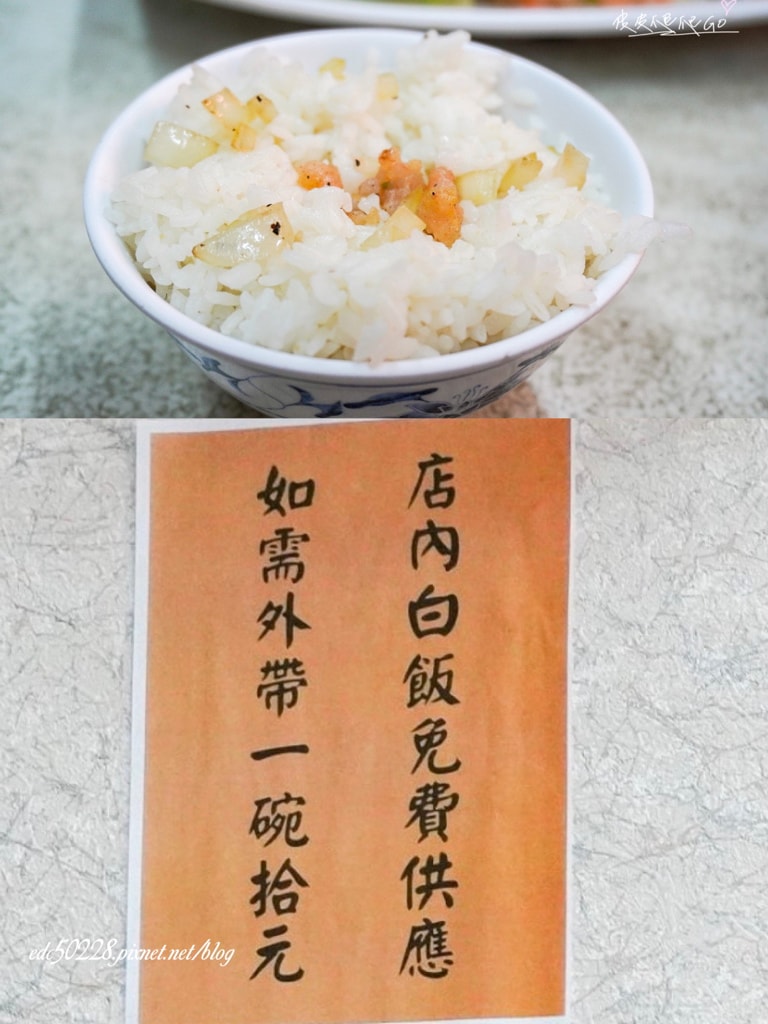 店內白飯免費供應
如需外帶一碗拾元
edc50228.pixnet.net/blog